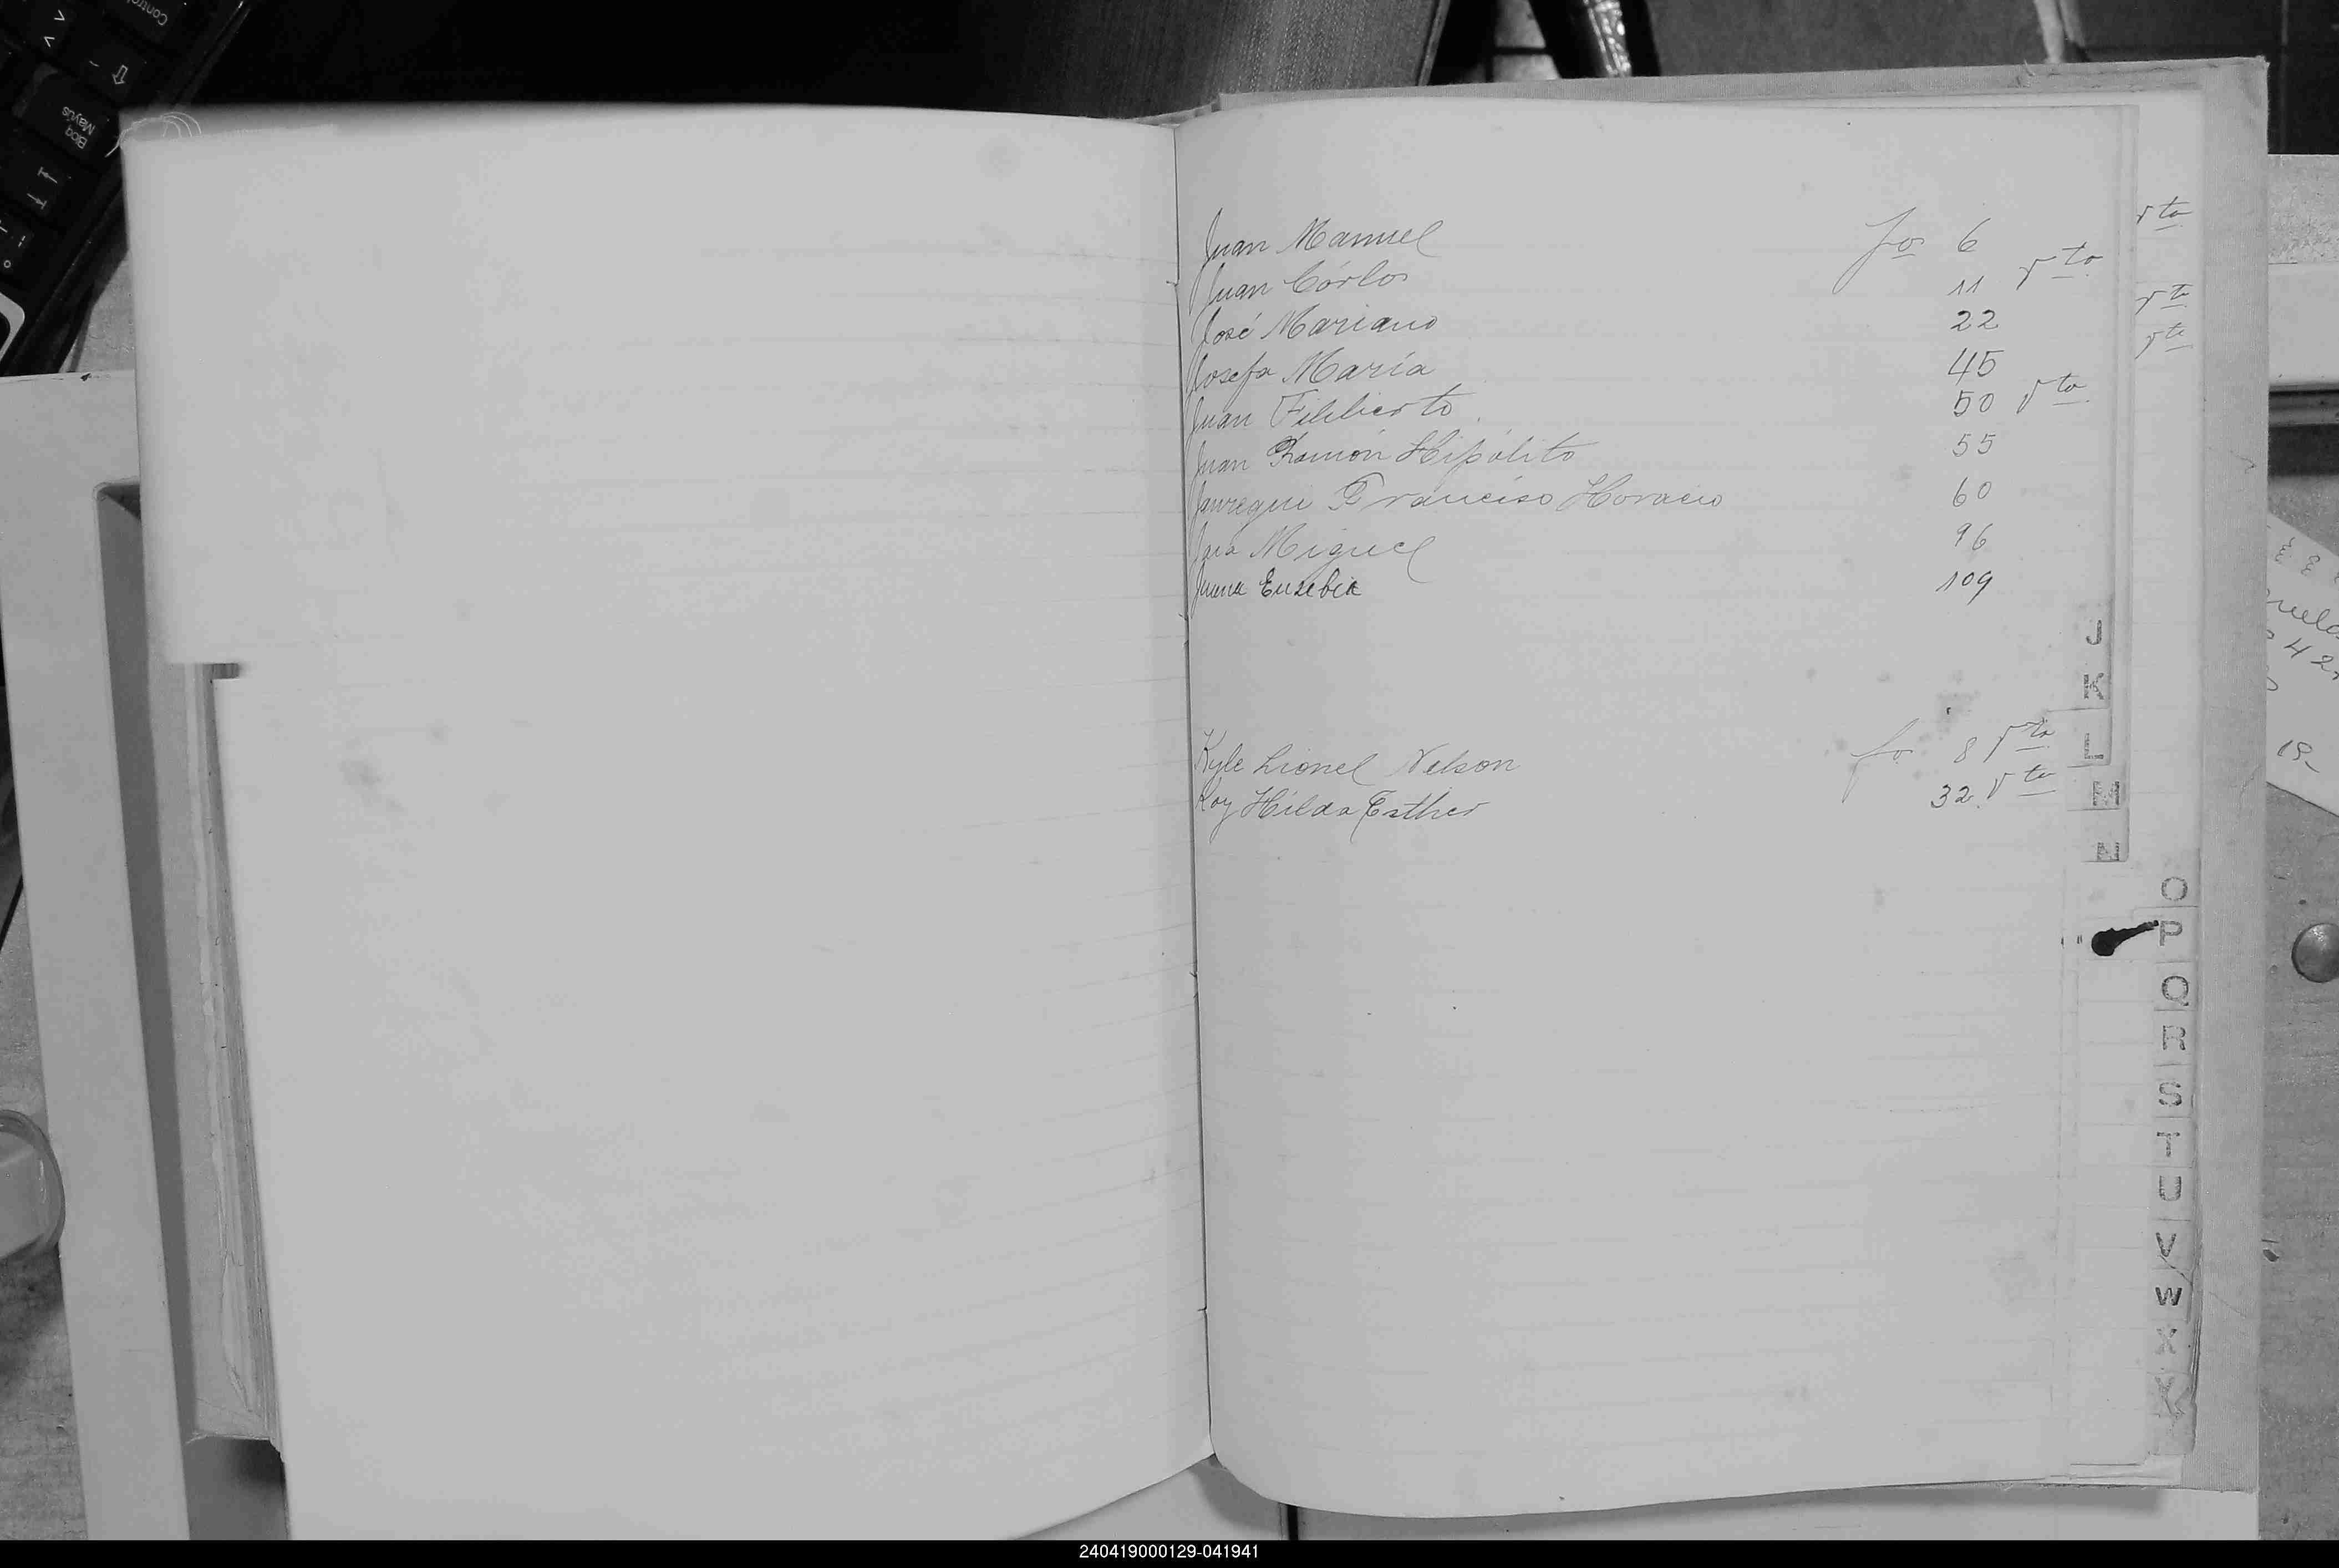 Juan Manuel fo 6
Juan Cárlos 11 vto
José Mariano 22
Josefa María 45
Juan Filiberto 50 vto
Juan Ramón Hipólito 55
Jauregui Franciso Horacio 60
Jara Miguel 96
Juana Euzebia 109
J
K
Kyle Lionel Nelson fo 8 vto
Koy Hilda Esther 32 vto
L
M
N
O
P
Q
R
S
T
U
V
W
X
Y
vto
vto
vto
42
19
Control
Bloq
Mayús
240419000129-041941